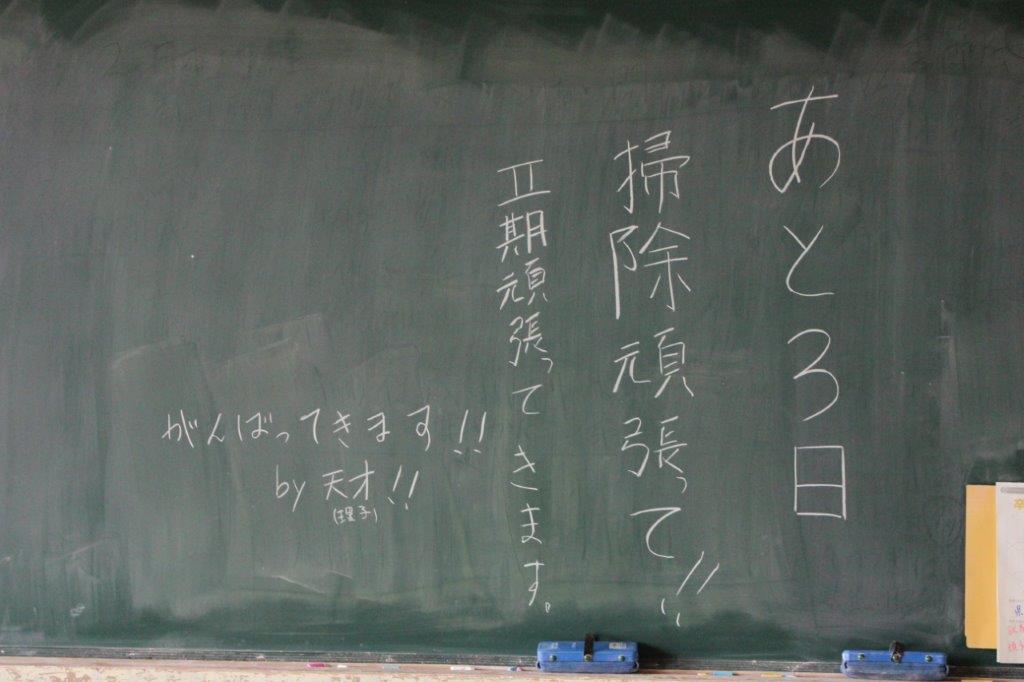 あと3日
掃除頑張って!!
Ⅱ期頑張ってきます。
がんばってきます!!
by 天才!!
(理子)
卒